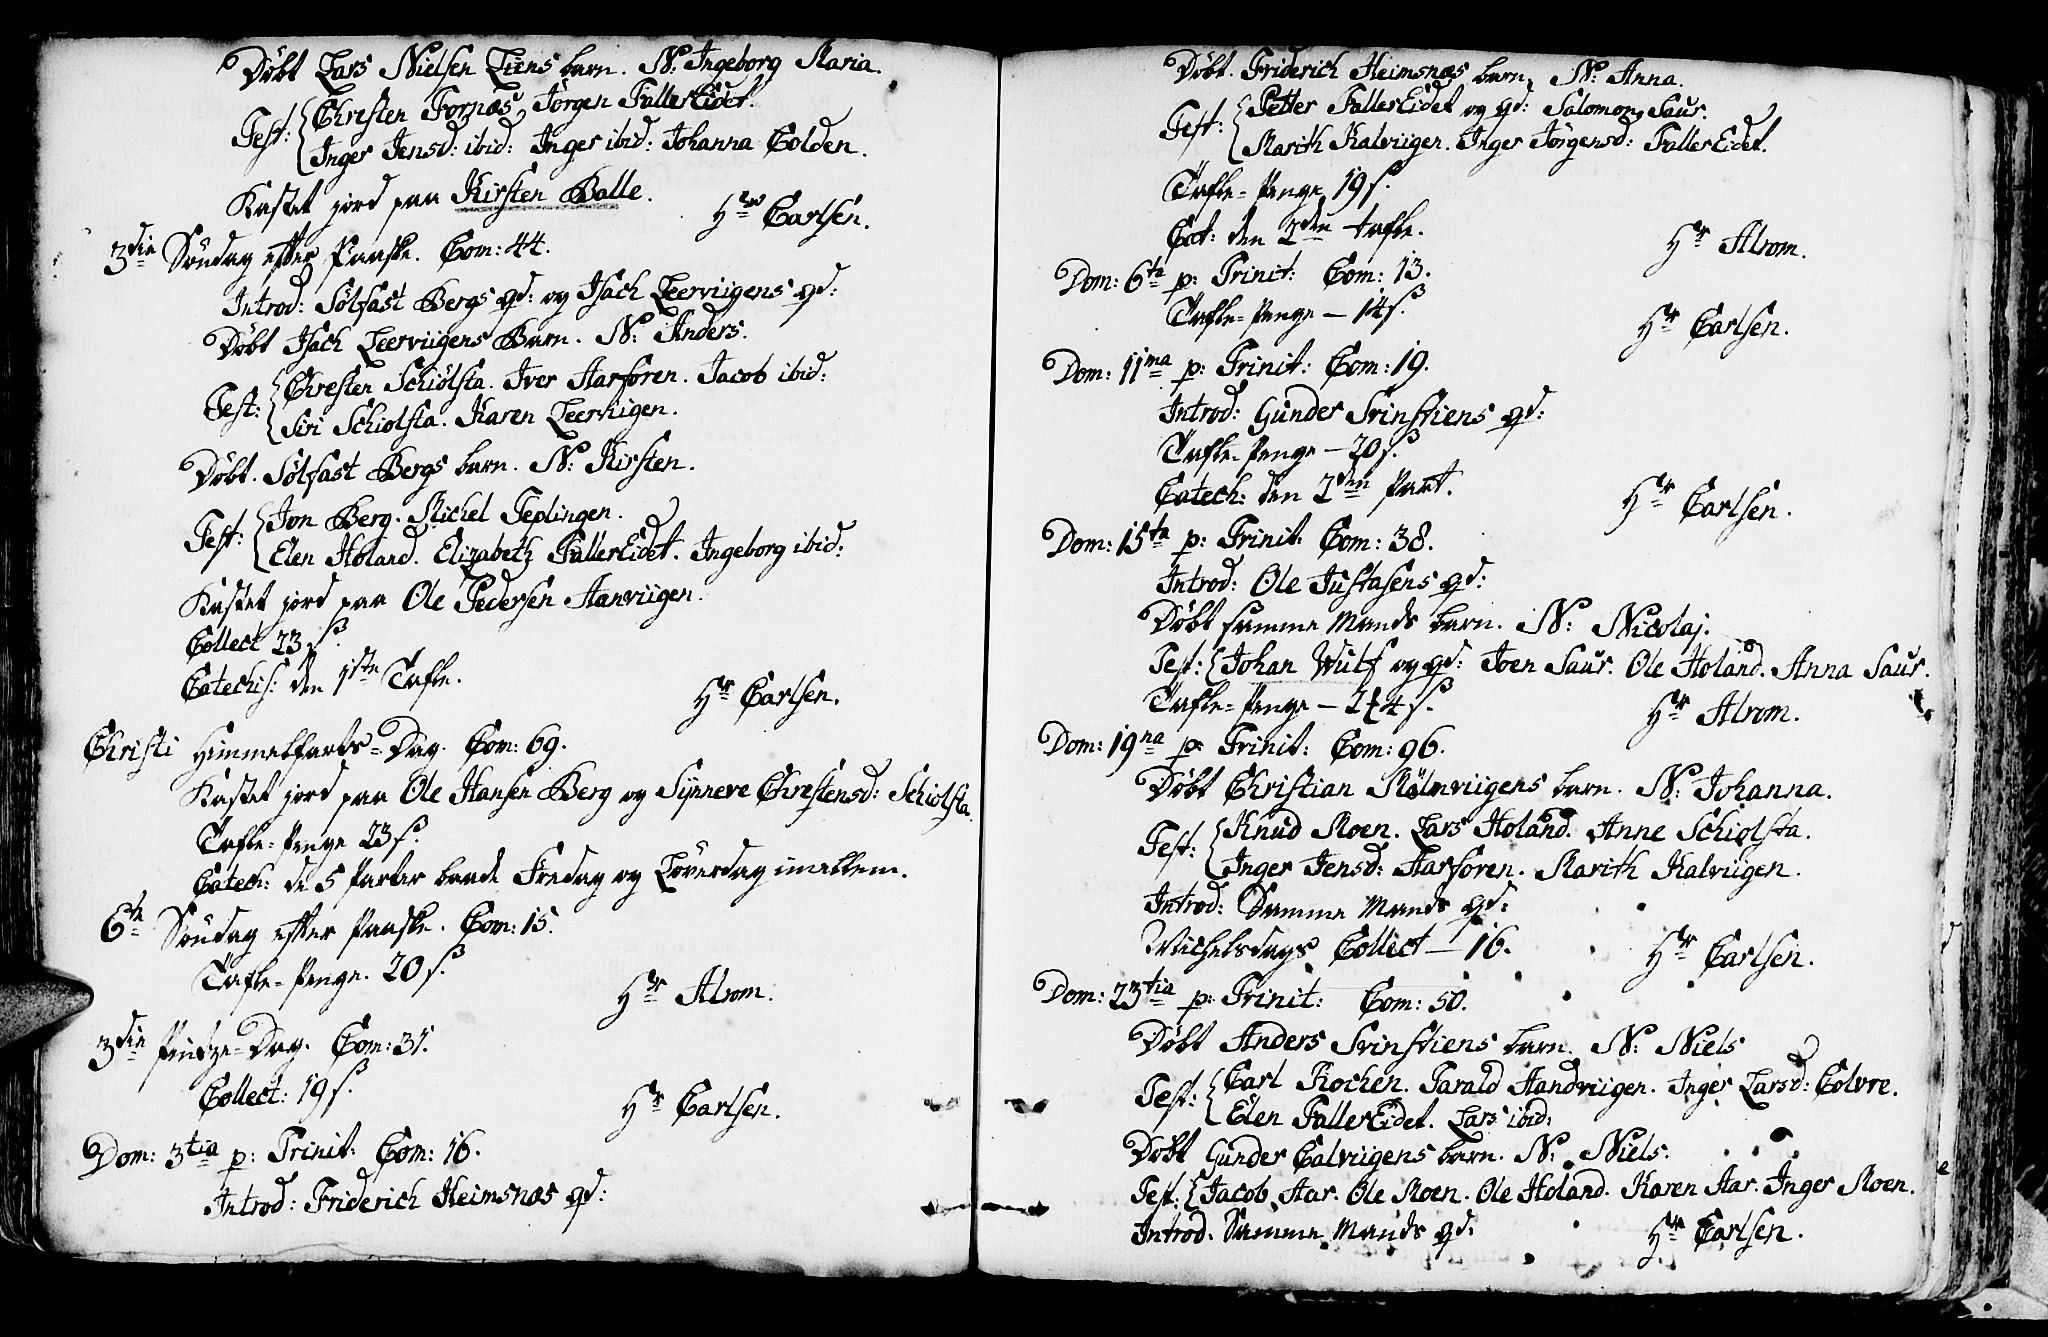 Döbt Lars Nielsen Liens barn. N: Ingeborg Maria.
Test: Christen Fornæs, Jörgen FallerEidet.
Inger Jensd: ibid: Inger ibid: Johanna Colden.
Kastet jord paa Kirsten Balle.
Hr Carlsen.
3die Söndag efter Paaske. Com: 44.
Introd: Sölfast Bergs qd: og Isach Leerviigens qd:
Döbt Isach Leerviigens Barn. N: Anders.
Test: Christen Schiölsta. Iver Aarforen. Jacob ibid:
Siri Schiolsta. Karen Leerviigen.
Döbt. Sölfast Bergs barn. N: Kirsten.
Test: Jon Berg. Michel Teplingen.
Elen Holand. Elizabeth FallerEidet. Ingeborg ibid:
Kastet jord paa Ole Pedersen Aanviigen.
Collect 23 s.
Catechis: den 1ste Tafle.
Hr Carlsen.
Christi Himmelfarts-Dag. Com: 69.
Kastet jord paa Ole Hansen Berg og Synneve Christensd: Schiolsta.
Tafle-Penge 23 s.
Catech: de 5 Parter baade Fredag og Löverdag imellem.
6te Söndag efter Paaske. Com: 15.
Tafle-Penge. 20 s.
Hr Alrom.
3die Pintze-Dag. Com: 31.
Collect: 19 s.
Hr Carlsen.
Dom: 3tia p: Trinit: Com: 16.
Introd: Friderich Heimsnæs qd:
Döbt. Friderich Heimsnæs barn, N: Anna.
Test: Petter FallerEidet og qd: Salomon Saur.
Marith Kalviigen. Inger Jörgensd: FallerEidet.
Tafle-Penge 19 s.
Cat: den 2den tafle.
Hr Alrom.
Dom: 6ta p: Trinit: Com: 13.
Tafle-Penge — 14 s.
Hr Carlsen.
Dom: 11ma p: Trinit: Com: 19.
Introd: Gunder Svinstiens qd:
Tafle-Penge — 20 s.
Catech: den 2den Part.
Hr Carlsen.
Dom: 15ta p: Trinit: Com: 38.
Introd: Ole Justasens qd:
Döbt samme Mands barn. N: Nicolaj.
Test: Johan Wulf og qd: Joen Saur. Ole Holand. Anna Saur.
Tafle-Penge — 24 s.
Hr Alrom.
Dom: 19na p: Trinit: Com: 96.
Döbt Christian Mölnviigens barn. N: Johanna.
Test: Knud Moen. Lars Holand. Anne Schiolsta.
Inger Jensd: Aarforen. Marith Kalviigen.
Introd: Samme Mands qd:
Michelsdags Collect — 16.
Hr Carlsen.
Dom: 23tia p: Trinit: Com: 50.
Döbt Anders Svinstiens barn. N: Niels
Test: Carl Kochen. Tarald Aandviigen. Inger Larsd: Colvre.
Elen FallerEidet. Lars ibid:
Döbt Gunder Calviigens barn. N: Niels.
Test: Jacob Aar. Ole Moen. Ole Holand. Karen Aar. Inger Moen.
Introd: Samme Mands qd:
Hr Carlsen.